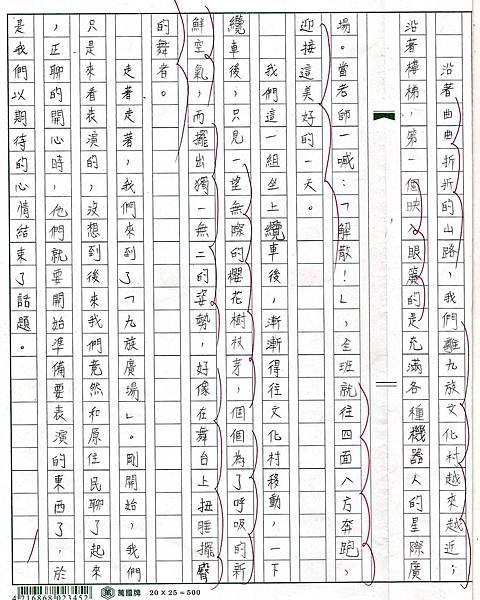 沿著曲曲折折的山路，我們離九族文化村越來越近；
沿著樓梯，第一個映入眼簾的是充滿各種機器人的星際廣
場。當老師一喊：「解散！」，全班就往四面八方奔跑，
迎接這美好的一天。
我們這一組坐上纜車後，漸漸得往文化村移動，一下
纜車後，只見一望無際的櫻花樹枝芽，個個為了呼吸的新
鮮空氣，而擺出獨一無二的姿勢，好像在舞台上扭腰擺臀
的舞者。
走著走著，我們來到了「九族廣場」。剛開始，我們
只是來看表演的，沒想到後來我們竟然和原住民聊了起來
，正聊的開心時，他們就要開始準備要表演的東西了，於
是我們以期待的心情結束了話題。
4716868023452 萬國牌 20 X 25 = 500